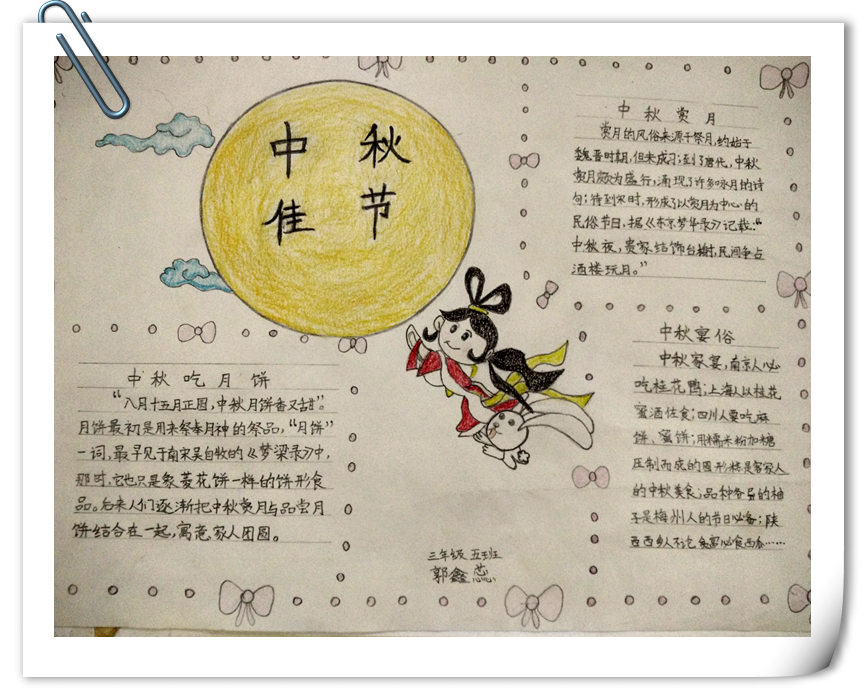 中秋
佳节
中秋赏月
赏月的风俗来源于祭月,约始于
魏晋时期,但未成习;到了唐代,中秋
赏月颇为盛行,涌现了许多咏月的诗
句;待到宋时,形成了以赏月为中心的
民俗节日,据《东京梦华录》记载:“
中秋夜,贵家结饰台榭,民间争占
酒楼玩月。”
中秋吃月饼
“八月十五月正圆,中秋月饼香又甜”。
月饼最初是用来祭奉月神的祭品,“月饼”
一词,最早见于南宋吴自牧的《梦梁录》中,
那时,它也只是象菱花饼一样的饼形食
品。后来人们逐渐把中秋赏月与品尝月
饼结合在一起,寓意家人团圆。
中秋宴俗
中秋家宴,南京人必
吃桂花鸭;上海人以桂花
蜜酒佐食;四川人要吃麻
饼、蜜饼;用糯米粉加糖
压制而成的圆形糕是客家人
的中秋美食;品种各异的柚
子是梅州人的节日必备;陕
西西乡人不论贫富必食西瓜……
三年级五班
郭鑫蕊